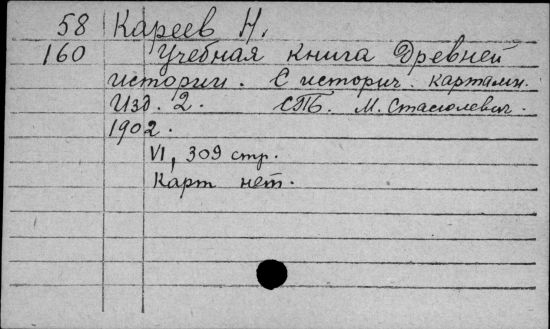 58 Кареев Н.
160 Учебная книга Древней
истории. С историч. картами.
Изд. 2. СПб. М. Стасюлевич.
1902.
VI, 309 стр.
Карт нет.